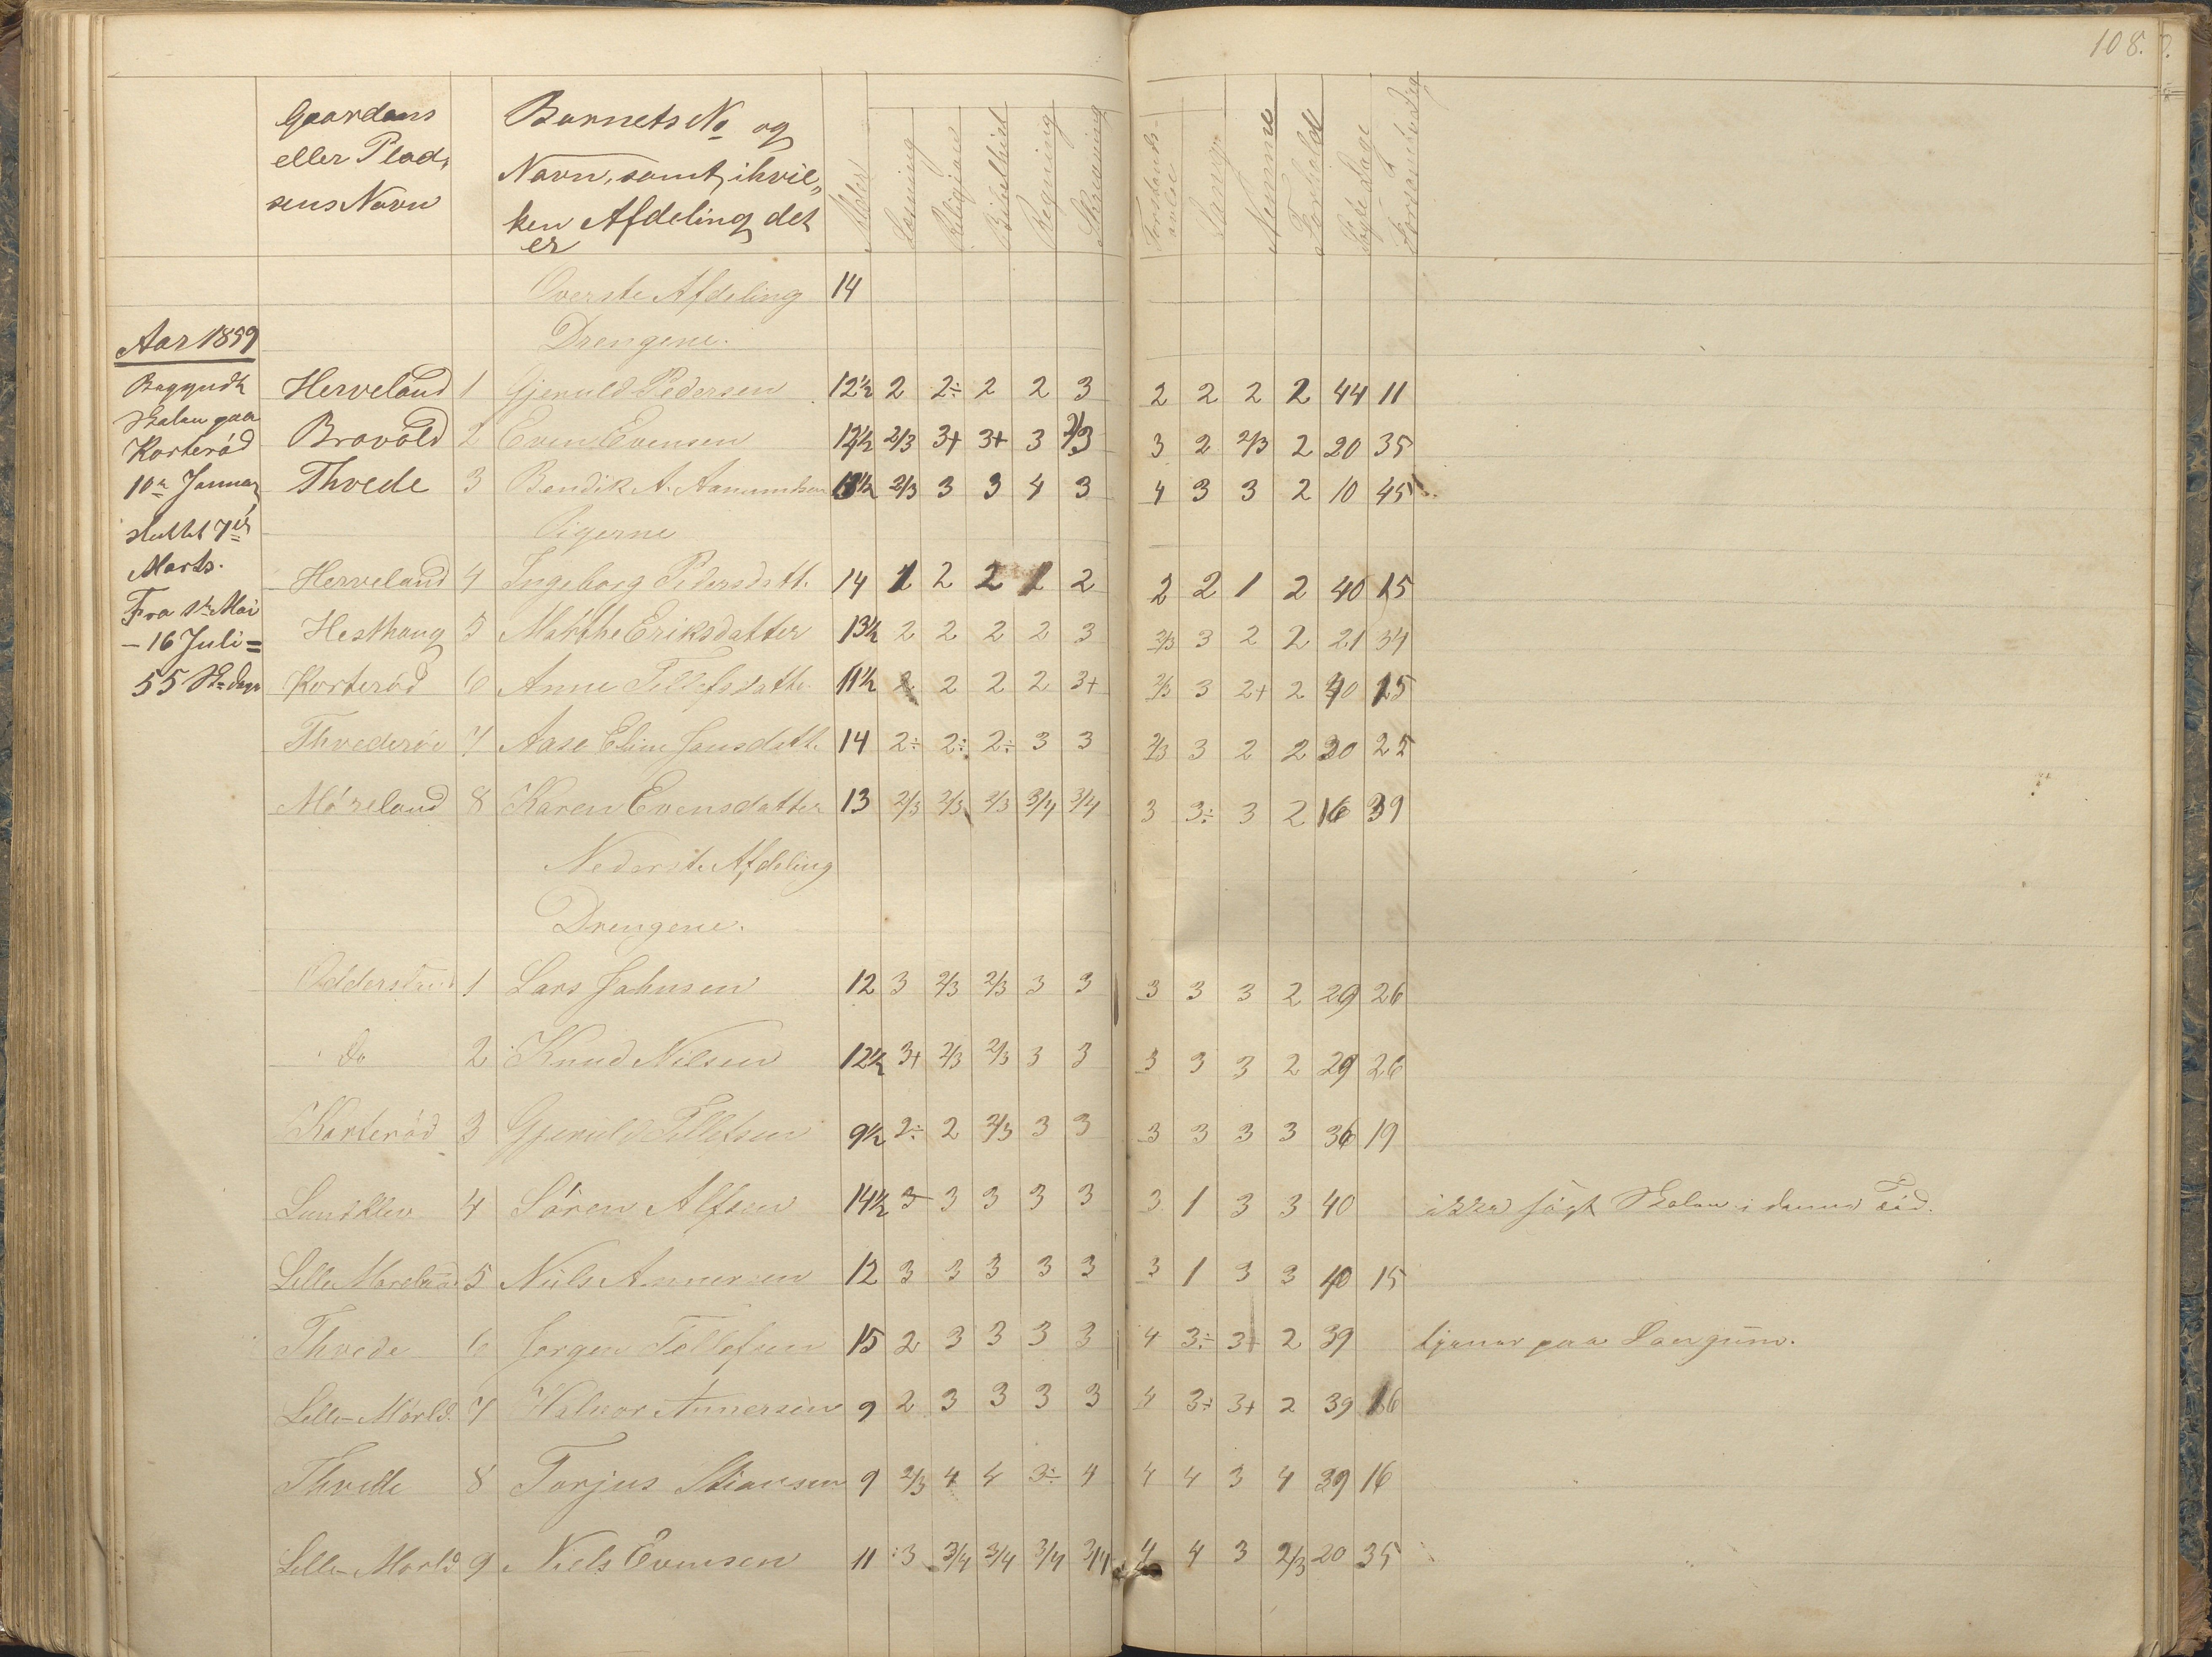 108.
Gaardens eller Plad,sens Navn | Barnets No og Navn, samt ihvil,ken Afdeling det er | Alder | Læsning | Religion | Bibelhist | Regning | Skrivning | Forstands-øvelse | Sang | Nemme | Forhold | Søgte Dage | Forsømte Dag
Överste Afdeling 14
Aar 1859
Drengene.
Begyndt Skolen paa Korteröd 10de Januar, sluttet 7de Marts.
Fra 1ste Mai – 16 Juli = 55 Sk=dage
Herveland 1 Gjeruld Pedersen 12½ 2 2÷ 2 2 3 2 2 2 2 44 11
Bravold 2 Even Evensen 12½ 2/3 3+ 3+ 3 2/3 3 2 2/3 2 20 35
Thvede 3 Bendik A. Aanumsen 13½ 2/3 3 3 4 3 4 3 3 2 10 45
Pigerne
Herveland 4 Ingeborg Pedersdatt. 14 1 2 2 1 2 2 2 1 2 40 15
Hesthaug 5 Marthe Eriksdatter 13½ 2 2 2 2 3 2/3 3 2 2 21 34
Korteröd 6 Anne Tellefsdatte. 11½ 2 2 2 2 3+ 2/3 3 2+ 2 40 15
Thvederöe 7 Aase Eline Jansdatte. 14 2÷ 2÷ 2÷ 3 3 2/3 3 2 2 30 25
Möreland 8 Karen Evensdatter 13 2/3 2/3 2/3 3/4 3/4 3 3÷ 3 2 16 39
Nederste Afdeling
Drengene.
1 Lars Jahnsen 12 3 2/3 2/3 3 3 3 3 3 2 29 26
do 2 Knud Nilsen 12½ 3+ 2/3 2/3 3 3 3 3 3 2 29 26
Korteröd 3 Gjeruld Tellefsen 9½ 2÷ 2 2/3 3 3 3 3 3 3 36 19
4 Sören Alfsen 14½ 3 3 3 3 3 3 1 3 3 40 ikke sögt Skolen i denne Tid.
Lille Moreland 5 Niels Annersen 12 3 3 3 3 3 3 1 3 3 40 15
Thvede 6 Jorgen Tellefsen 15 2 3 3 3 3 4 3÷ 3+ 2 39 tjener paa Langum.
Lille-Mörld. 7 Halvor Annersen 9 2 3 3 3 3 4 3÷ 3+ 2 39 16
Thvede 8 Torjus Stiansen 9 2/3 4 4 3÷ 4 4 4 3 4 39 16
Lille-Morld 9 Niels Evensen 11 3 3/4 3/4 3/4 3/4 4 4 3 2/3 20 35